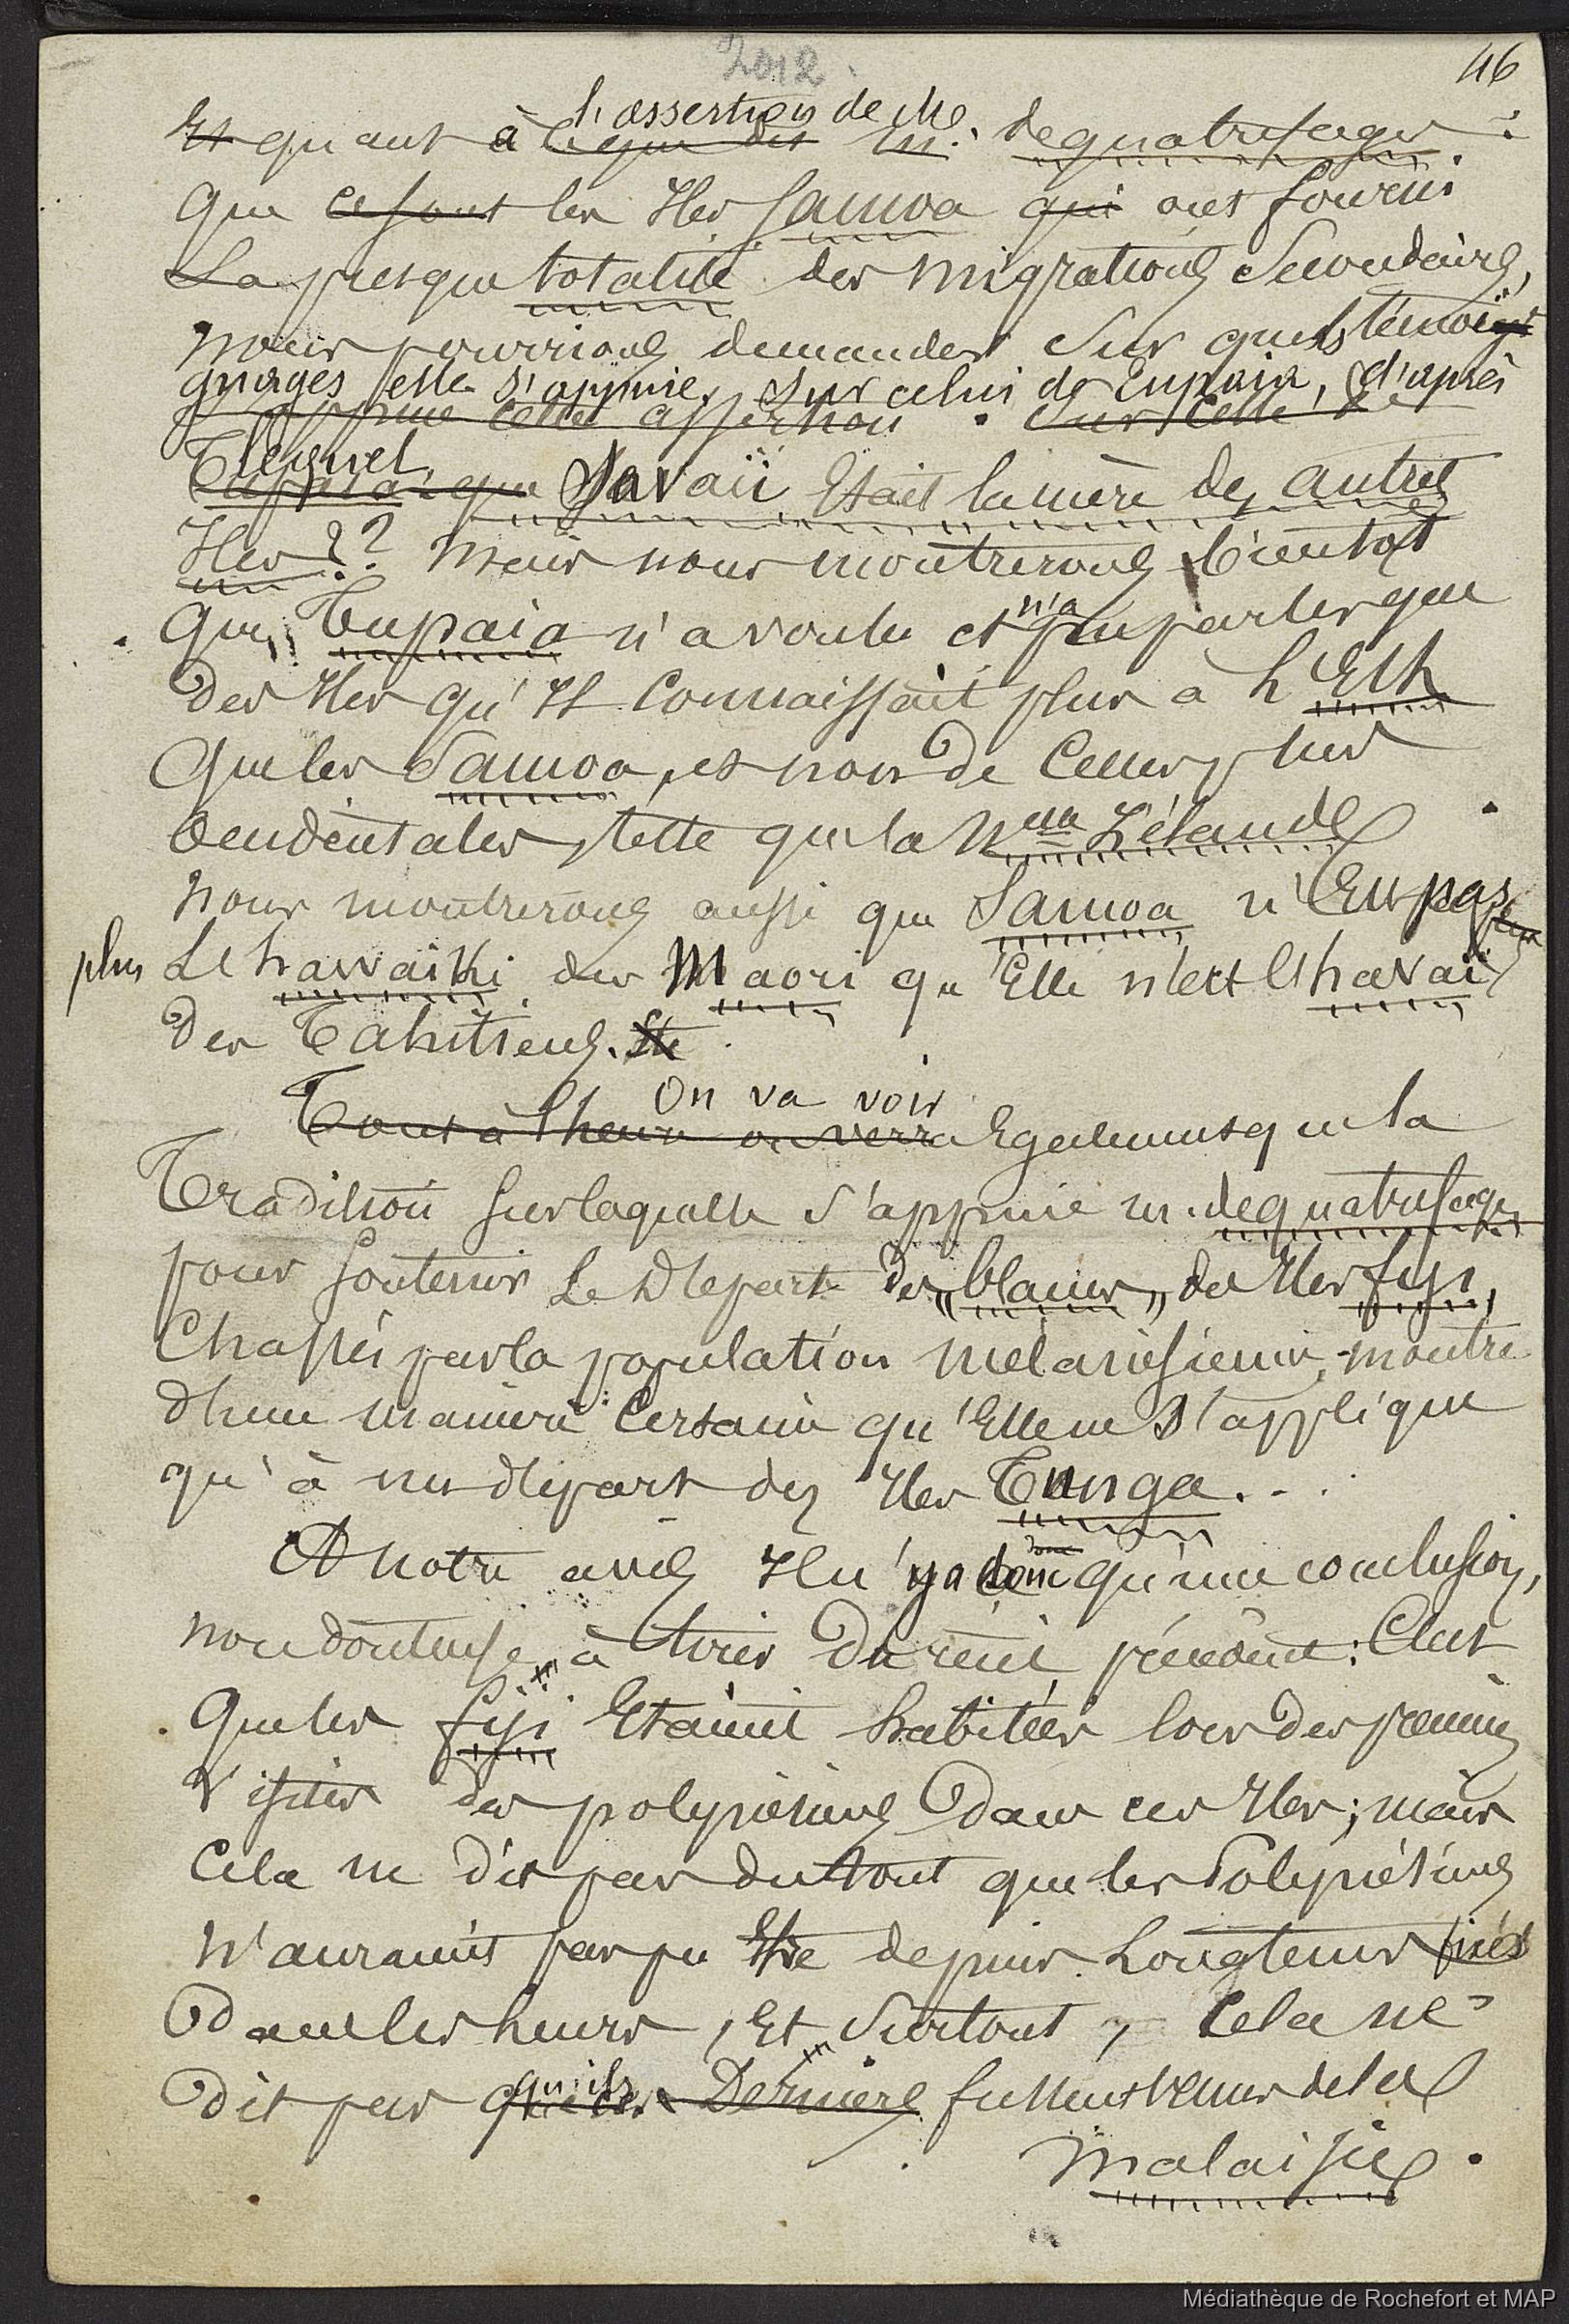 2012
46
l'assertion de Me
Et quant à ce que dit M. de quatrefages :
que ce sont les Iles Samoa qui ont fourni
La presque totalité des migrations Secondaires,
nous pourrions demander Sur quels témoi
gnages elle s'appuie. Sur celui de Tupaia, d'après
s'appuie cette assertion. Sur celle de
lequel
Tupaia que Savaïi Etait la mère des autres
Iles ?? Mais nous montrerons bientot
que Tupaia n'a voulu et n'a pu parler que
des Iles qu'Il Connaissait plus à l'Est
que les Samoa, et non de Celles plus
occidentales, telle que la Nlle Zélande
nous montrerons aussi que Samoa n'Est pas
plus Le hawaiki des Maori qu'Elle n'est l'havaï
des Tahitiens.
On va voir
Tout à l'heure on verra Egalement que la
Tradition sur laquelle s'appuie M. de quatrefages
pour soutenir Le Départ des "blancs" des Iles fiji,
Chassés par la population mélanésienne, montre
d'une manière Certaine qu'Elle ne s'applique
qu'à un départ des Iles Tunga...
A notre avis Il n'y a donc qu'une conclusion,
non douteuse, à tirer du récit précédent : C'est
que les fiji Etaient habitées lors des premières
Visites des polynésiens dans ces Iles ; mais
Cela ne dit pas du tout que les Polynésiens
N'auraient pas pu Etre depuis Longtems fixés
Dans les leurs, Et Surtout, Cela ne
qu'ils
Dit pas que ces Derniers fussent venus de la
Malaisie.
Médiathèque de Rochefort et MAP